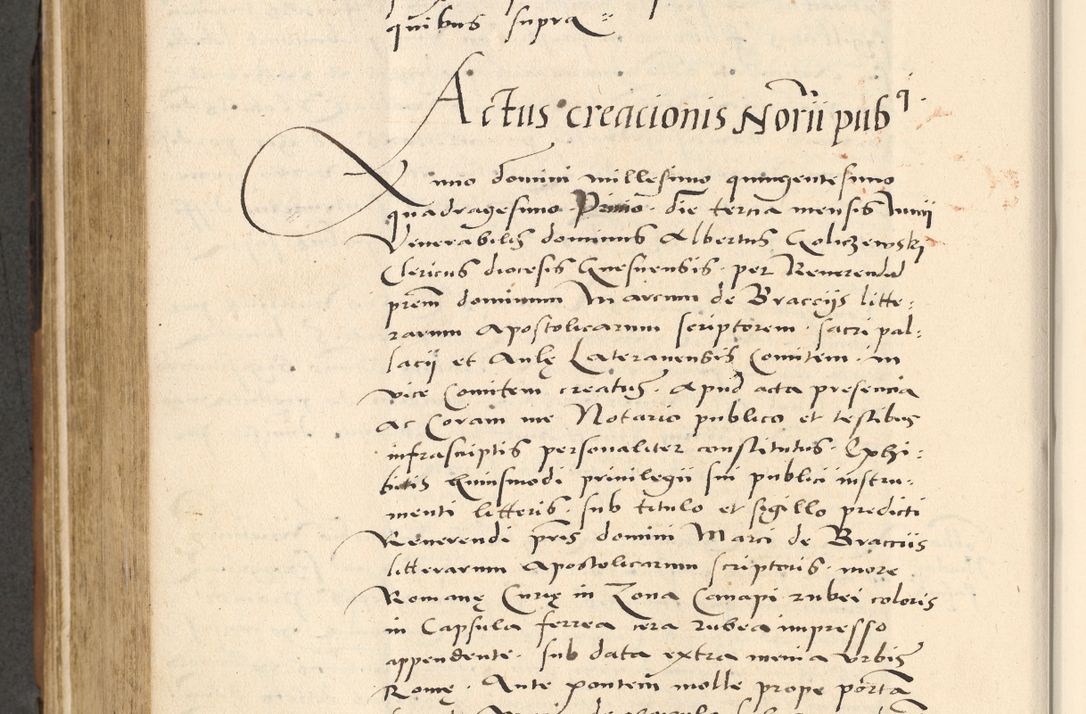 quibus supra
Actus creacionis Norii pubci
Anno domini millesimo quingentesimo
quadragesimo Primo die tercia mensis Iunii
Venerabilis dominus Albertus Goliczewski
Clericus diocesis Gnesnensis per Reverendum
prem dominum Marcum de Braccijs litte:
rarum Apostolicarum scriptorem sacri pal:
lacij et Aulę Lateranensis Comitem in
vice Comitem creatus. Apud acta presencia
ac Coram me Notario publico et testibus
infrascriptis personaliter constitutus. Exhi:
bitis huiusmodi privilegii sui publici instru:
menti litteris. sub titulo et sigillo predicti
Reverendi pris domini Marci de Bracciis
litterarum Apostolicarum scriptoris more
Romanę Curię in Zona Canapi rubei coloris
in Capsula ferrea cera rubea impresso
appendente. sub data extra menia urbis
Romę. Ante pontem molle prope portam